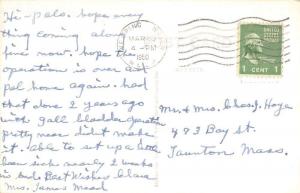 Hi-pals. hope every
thing coming along
fine now. hope the
operation is over and
pal home again. had
that done 2 years ago
with gall bladder operation
pretty near didn't make
it. able to set up a little
been sick nearly 2 weeks
in bed. Best Wishes
Mrs. James Mead
MAR
4 - PM
1950
1 CENT 1
Mr. & Mrs. Chas. J. Haye
483 Bay St.
Taunton Mass.